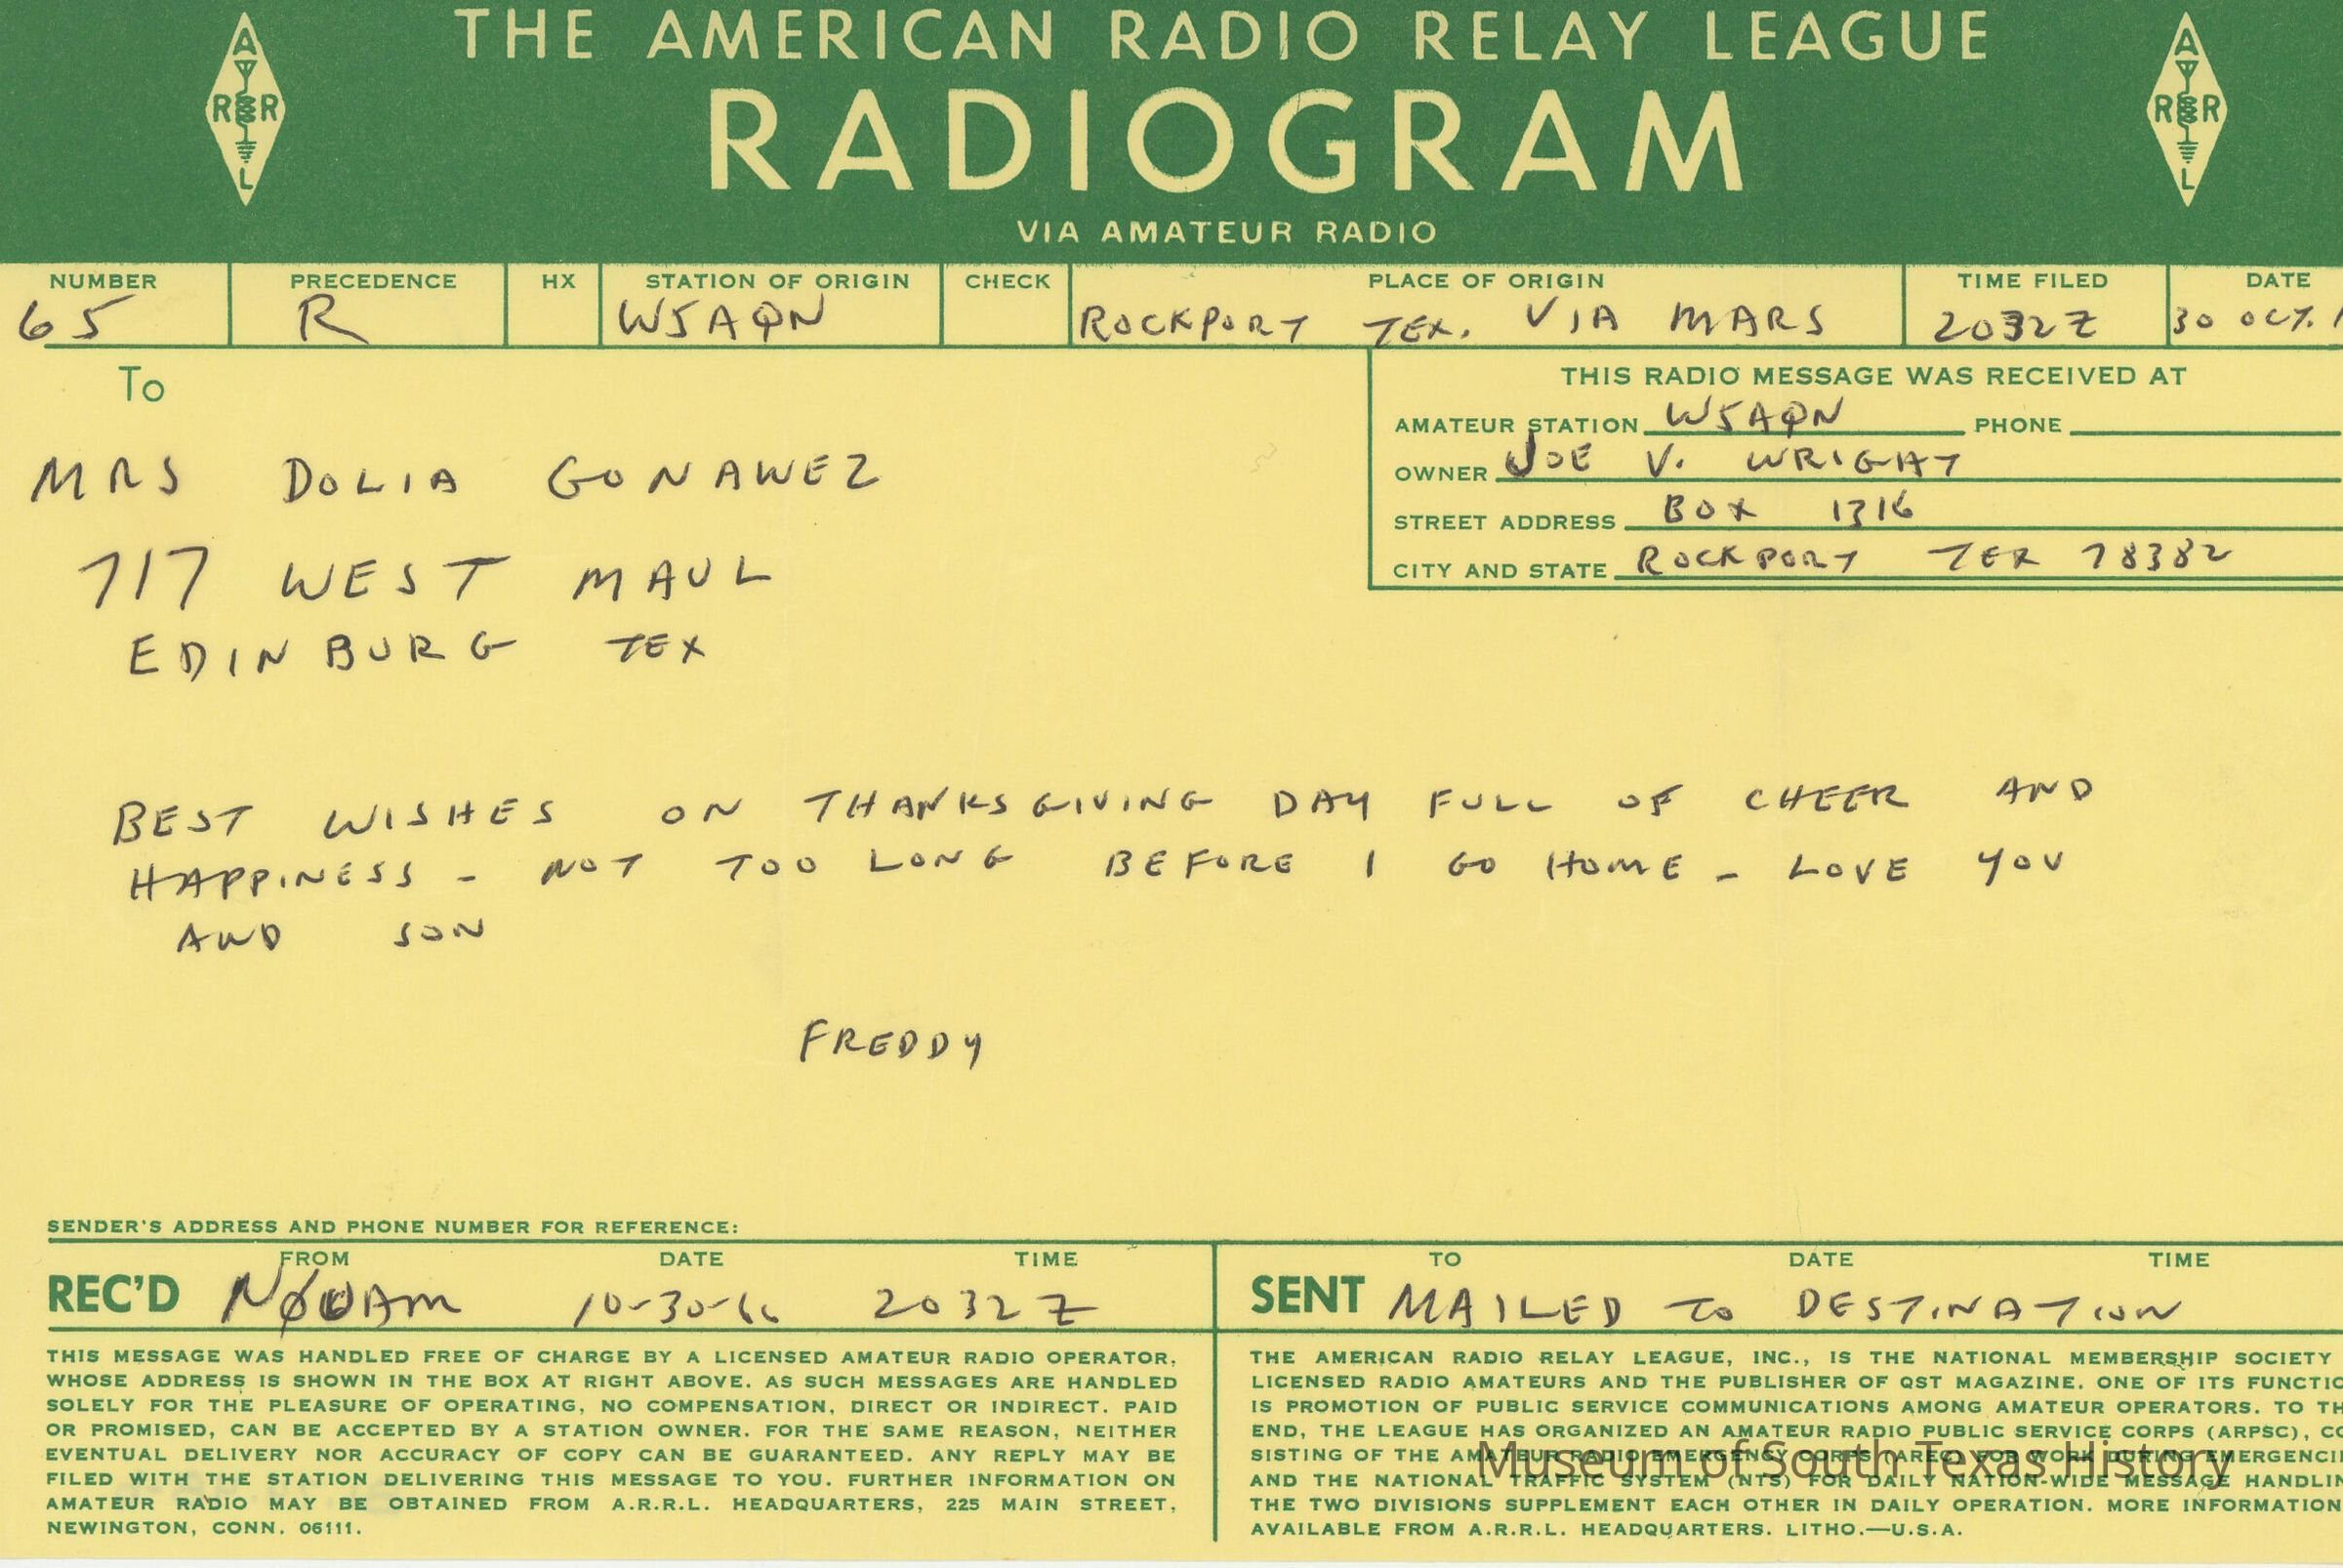 THE AMERICAN RADIO RELAY LEAGUE
RADIOGRAM
VIA AMATEUR RADIO
A R R L
A R R L
NUMBER PRECEDENCE HX STATION OF ORIGIN CHECK PLACE OF ORIGIN TIME FILED DATE
65 R W5AQN ROCKPORT TEX. VIA MARS 2032Z 30 OCT.
To
THIS RADIO MESSAGE WAS RECEIVED AT
AMATEUR STATION W5AQN PHONE
OWNER JOE V. WRIGHT
STREET ADDRESS BOX 1316
CITY AND STATE ROCKPORT TEX 78382
MRS DOLIA GONAWEZ
717 WEST MAUL
EDINBURG TEX
BEST WISHES ON THANKSGIVING DAY FULL OF CHEER AND
HAPPINESS - NOT TOO LONG BEFORE I GO HOME - LOVE YOU
AND SON
FREDDY
SENDER'S ADDRESS AND PHONE NUMBER FOR REFERENCE:
FROM DATE TIME
REC'D 2032Z
TO DATE TIME
SENT MAILED TO DESTINATION
THIS MESSAGE WAS HANDLED FREE OF CHARGE BY A LICENSED AMATEUR RADIO OPERATOR,
WHOSE ADDRESS IS SHOWN IN THE BOX AT RIGHT ABOVE. AS SUCH MESSAGES ARE HANDLED
SOLELY FOR THE PLEASURE OF OPERATING, NO COMPENSATION, DIRECT OR INDIRECT. PAID
OR PROMISED, CAN BE ACCEPTED BY A STATION OWNER. FOR THE SAME REASON, NEITHER
EVENTUAL DELIVERY NOR ACCURACY OF COPY CAN BE GUARANTEED. ANY REPLY MAY BE
FILED WITH THE STATION DELIVERING THIS MESSAGE TO YOU. FURTHER INFORMATION ON
AMATEUR RADIO MAY BE OBTAINED FROM A.R.R.L. HEADQUARTERS, 225 MAIN STREET,
NEWINGTON, CONN. 06111.
THE AMERICAN RADIO RELAY LEAGUE, INC., IS THE NATIONAL MEMBERSHIP SOCIETY
LICENSED RADIO AMATEURS AND THE PUBLISHER OF QST MAGAZINE. ONE OF ITS FUNCTIO
IS PROMOTION OF PUBLIC SERVICE COMMUNICATIONS AMONG AMATEUR OPERATORS. TO TH
END, THE LEAGUE HAS ORGANIZED AN AMATEUR RADIO PUBLIC SERVICE CORPS (ARPSC), CO
SISTING OF THE AMATEUR RADIO EMERGENCY CORPS (AREC) FOR WORK DURING EMERGENCI
AND THE NATIONAL TRAFFIC SYSTEM (NTS) FOR DAILY NATION-WIDE MESSAGE HANDLIN
THE TWO DIVISIONS SUPPLEMENT EACH OTHER IN DAILY OPERATION. MORE INFORMATION
AVAILABLE FROM A.R.R.L. HEADQUARTERS. LITHO.—U.S.A.
Museum of South Texas History